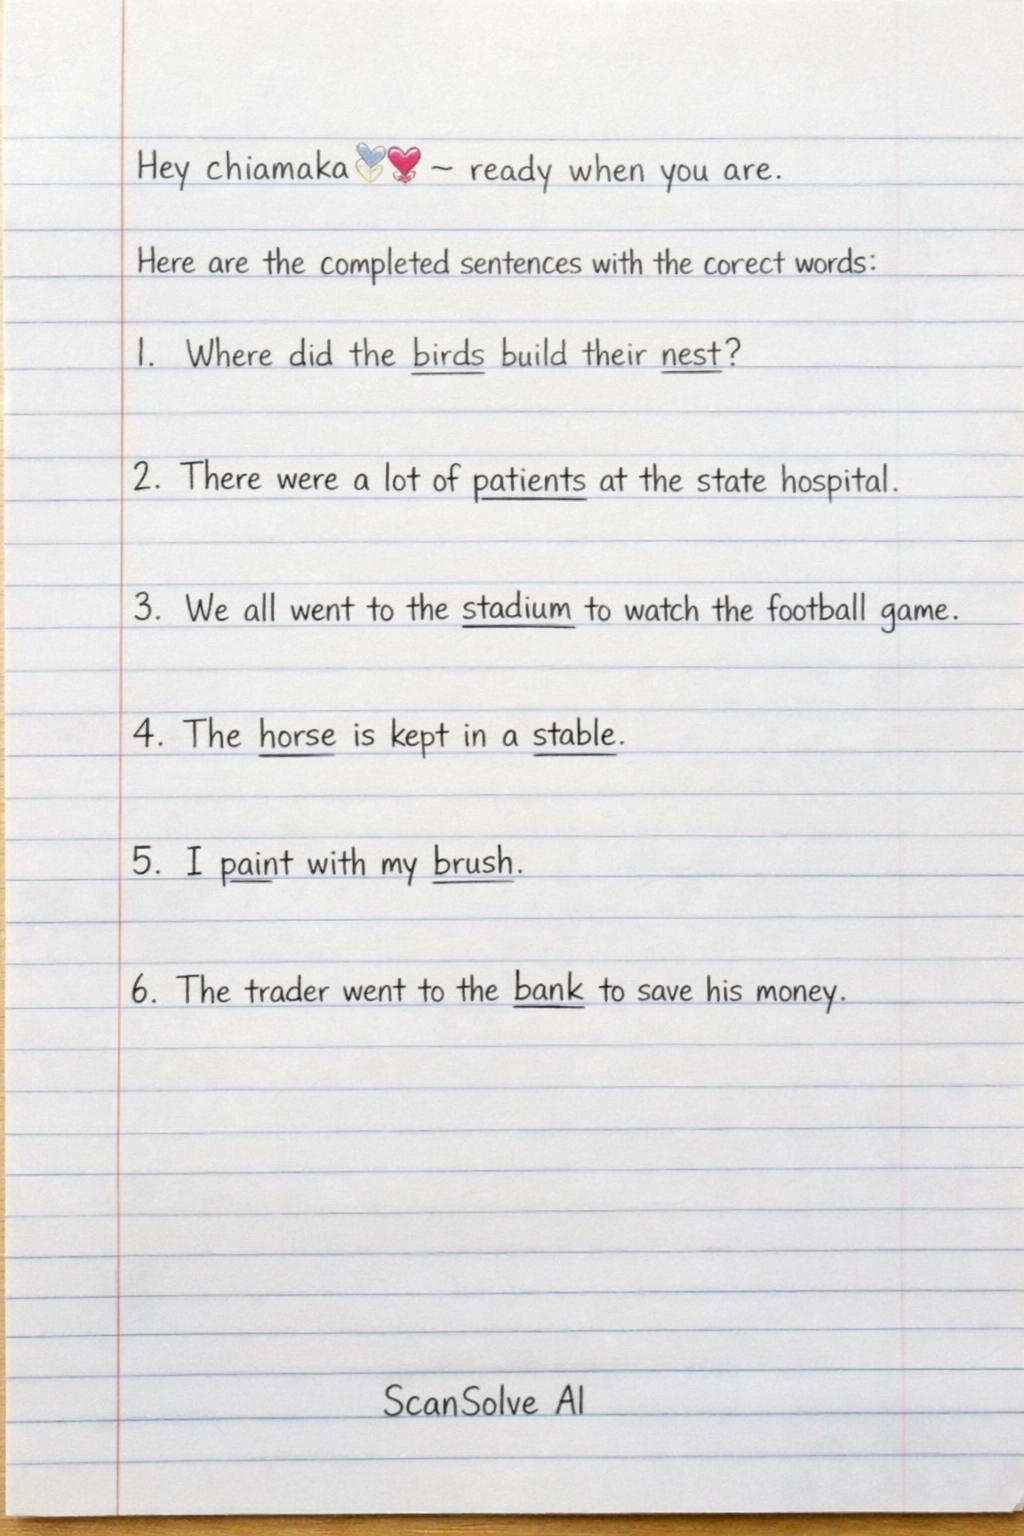 Hey chiamaka🩵💖 ~ ready when you are.
Here are the completed sentences with the corect words:
1. Where did the birds build their nest?
2. There were a lot of patients at the state hospital.
3. We all went to the stadium to watch the football game.
4. The horse is kept in a stable.
5. I paint with my brush.
6. The trader went to the bank to save his money.
ScanSolve AI